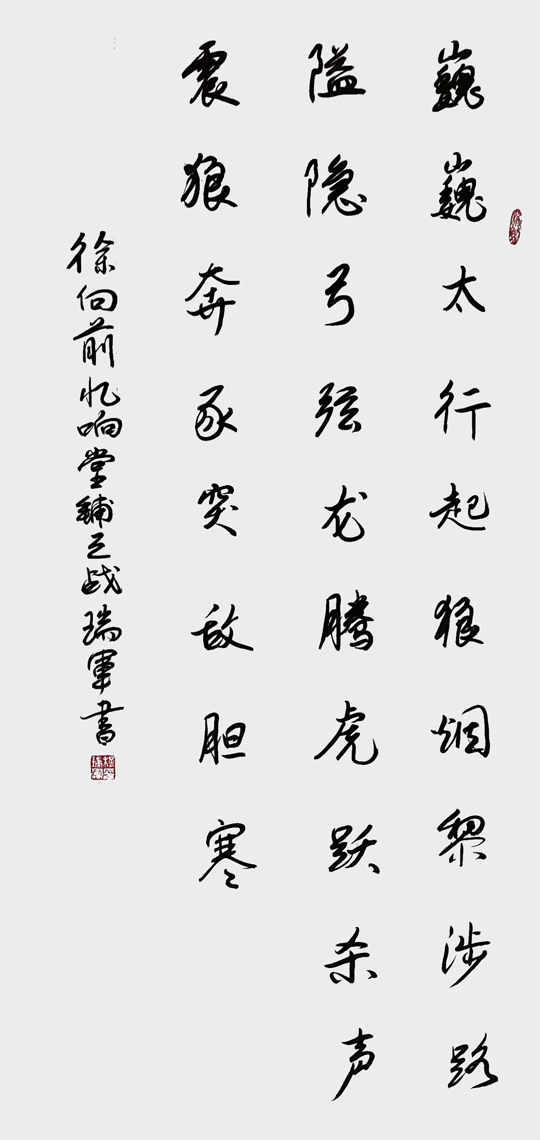 巍巍太行起狼烟黎涉路
隘隐弓弦龙腾虎跃杀声
震狼奔豕突敌胆寒
徐向前忆响堂铺之战瑞军书